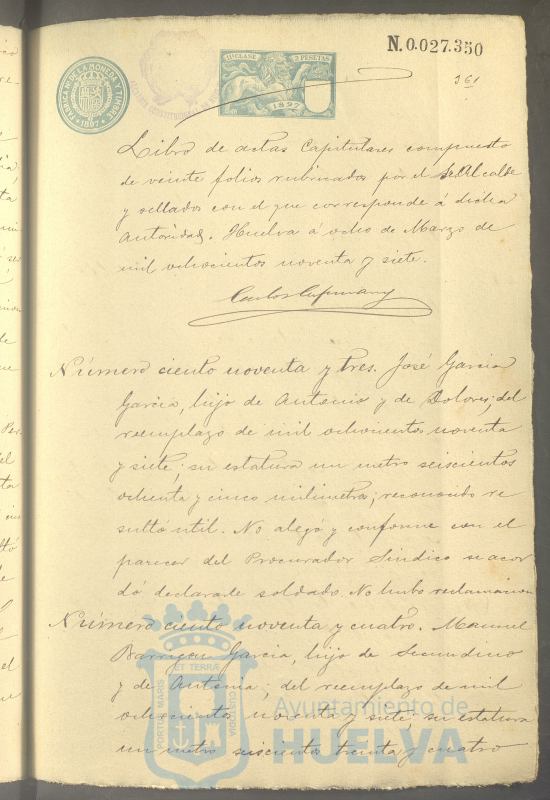 N.0.027.350
11ª CLASE 2 PESETAS
1897
FABRICA NL DE LA MONEDA Y TIMBRE
1897
361
Libro de actas Capitulares compuesto
de veinte folios rubricados por el Sr Alcalde
y sellados con el que corresponde á dicha
Autoridad. Huelva á ocho de Marzo de
mil ochocientos noventa y siete.
Carlos
Número ciento noventa y tres. José Garcia
Garcia, hijo de Antonio y de Dolores; del
reemplazo de mil ochocientos noventa
y siete; su estatura un metro seiscientos
ochenta y cinco milimetros; reconocido re
sultó util. No alegó y conforme con el
parecer del Procurador Sindico se acor
dó declararle soldado. No hubo reclamacion
Número ciento noventa y cuatro. Manuel
Barrigon Garcia, hijo de Secundino
y de Antonia; del reemplazo de mil
ochocientos noventa y siete; su estatura
un metro seiscientos treinta y cuatro
PORTUS MARIS ET TERRÆ CUSTODIA
Ayuntamiento de
HUELVA